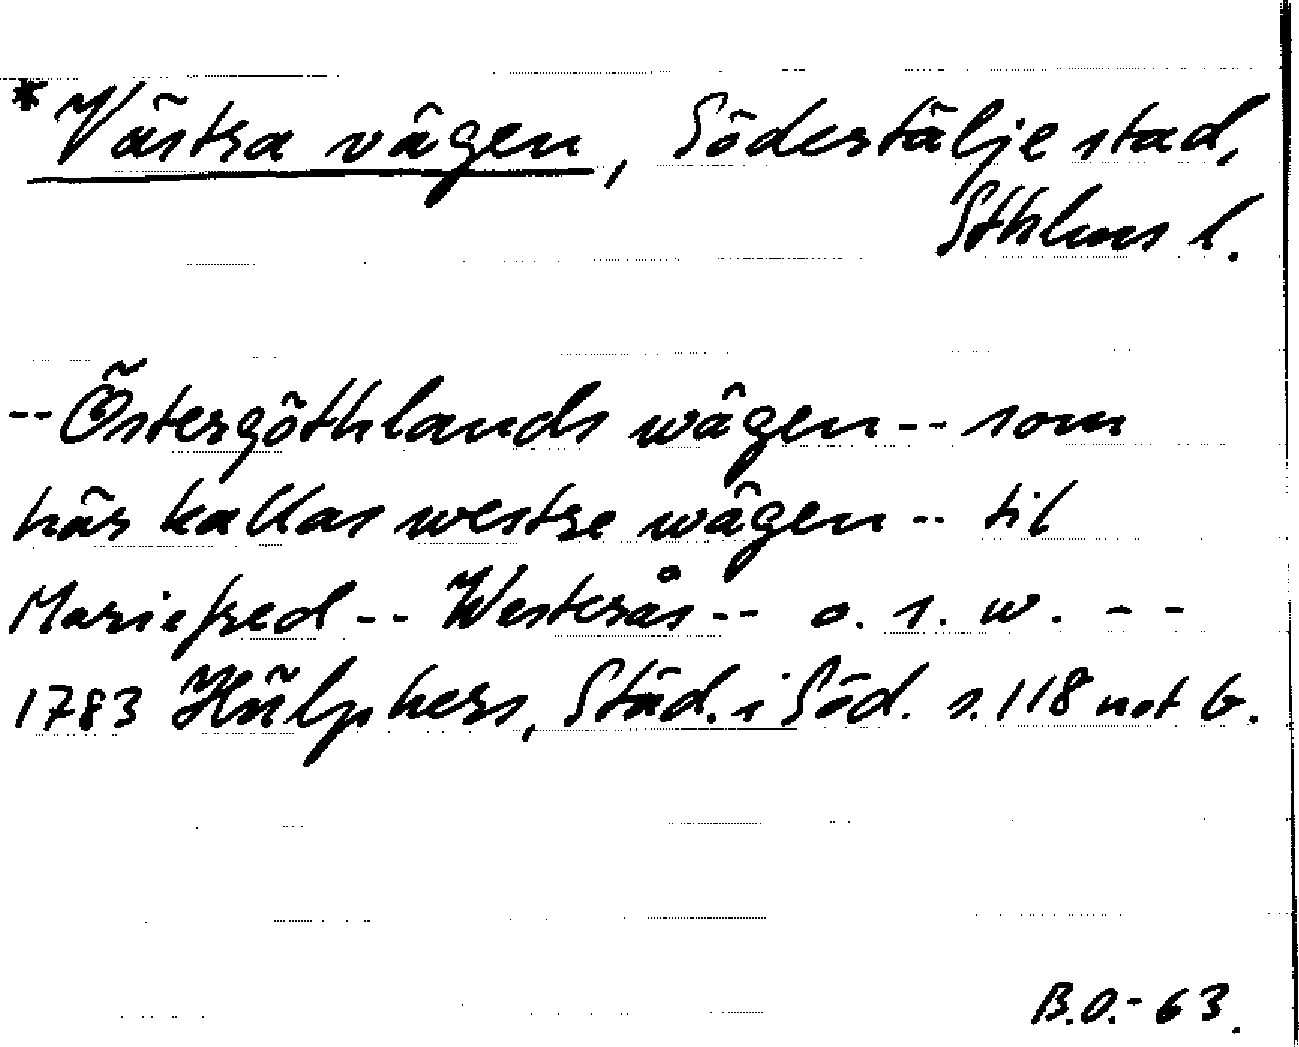 *Västra vägen, Södertälje stad,
Sthlms l.
-- Östergöthlands wägen -- som
här kallas westre wägen -- til
Mariefred -- Westerås -- o. s. w. --
1783 Hülphers, Städ. i Söd. s. 118 not b.
B.O.-63.